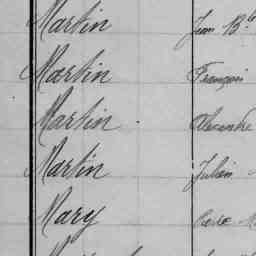 Martin Jean B.te
Martin François
Martin Alexandre
Martin Julien
Mary